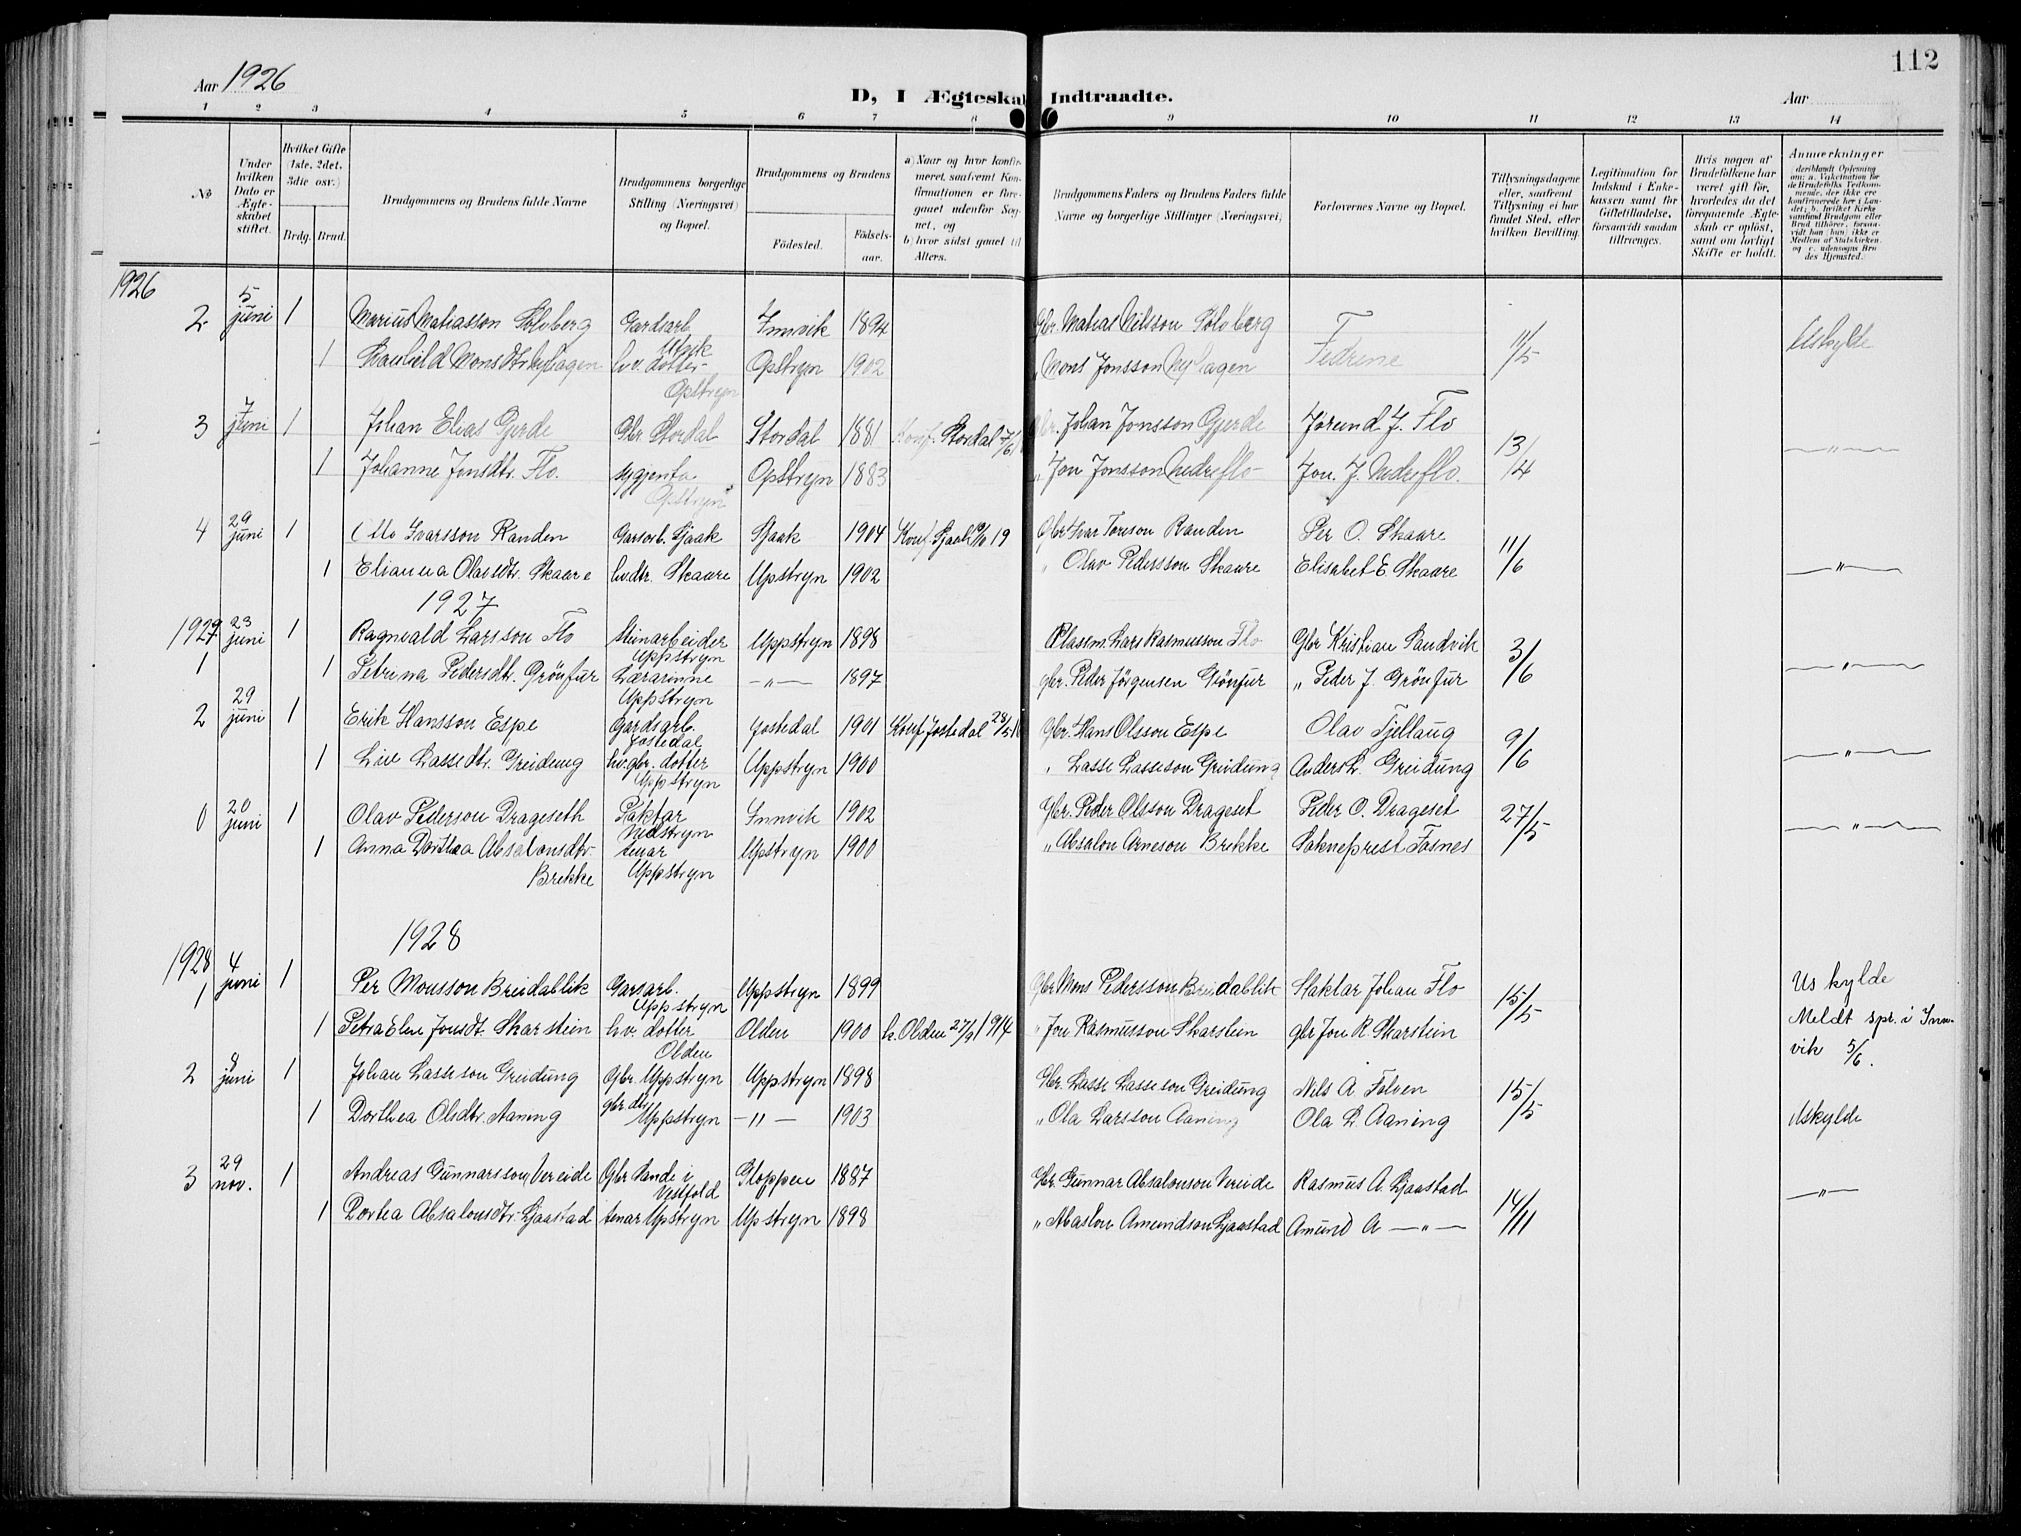 112
Aar 1926
D, I Ægteskab Indtraadte.
Aar
1 2 3 4 5 6 7 8 9 10 11 12 13 14
No
Under hvilken Dato er Ægteskabet stiftet.
Hvilket Gifte (1ste, 2det, 3die osv.)
Brdg. Brud.
Brudgommens og Brudens fulde Navne
Brudgommens borgerlige Stilling (Næringsvei) og Bopæl.
Brudgommens og Brudens
Födested. Födselsaar.
a) Naar og hvor konfirmeret, saafremt Konfirmationen er foregaaet udenfor Sognet, og
b) hvor sidst gaaet til Alters.
Brudgommens Faders og Brudens Faders fulde Navne og borgerlige Stillinger (Næringsvei)
Forlovernes Navne og Bopæl.
Tillysningsdagene eller, saafremt Tillysning ei har fundet Sted, efter hvilken Bevilling.
Legitimation for Indskud i Enkekassen samt for Giftetilladelse, forsaavidt saadan tiltrænges.
Hvis nogen af Brudefolkene har været gift för, hvorledes da det foregaaende Ægteskab er oplöst, samt om lovligt Skifte er holdt.
Anmærkninger
deriblandt Oplysning om: a. Vakcination for de Brudefolks Vedkommende, der ikke ere konfirmerede her i Landet; b. hvilket Kirkesamfund Brudgom eller Brud tilhörer, forsaavidt han (hun) ikke er Medlem af Statskirken, og c. udensogns Brudes Hjemsted.
1926
2 5 juni 1 Marius Matiasson Solvberg Gardsarb. Utvik Innvik 1894 Gbr. Matias Nilsson Solvberg Fedrene 11/5 Uskylde
1 Ranhild Monsdtr Nyhagen hv. dotter Opstryn Opstryn 1902 „ Mons Jonsson Nyhagen
3 7 juni 1 Johan Elias Gjerde Gbr Stordal Stordal 1881 Konf. Stordal Gbr. Johan Jonsson Gjerde Jørund J. Flo 13/4 — „ —
1 Johanne Jonsdtr. Flo. sygjenta Opstryn Opstryn 1883 „ Jon Jonsson Nedreflo Jon. J. Nedreflo.
4 29 juni 1 Otto Ivarsson Randen Garsarb. Sjaak Sjaak 1904 Konf. Sjaak 19 Gbr Ivar Torsson Randen Per O. Skaare 11/6 — „ —
1 Elianna Olavsdtr. Skaare hv.dtr. Skaare Upstryn 1902 „ Olav Pedersson Skaare Elisabet E. Skaare
1927
1927 1 23 juni 1 Ragnvald Larsson Flo Steinarbeider Uppstryn Uppstryn 1898 Plassm. Lars Rasmusson Flo Gbr Kristian Sandvik 3/6 — „ —
1 Petrina Pedersdtr. Grönfur Lærarinne Uppstryn — „ — 1897 gbr. Peder Jörgensen Grönfur „ Peder J. Grönfur
2 29 juni 1 Erik Hansson Espe Gardsarb. Jostedal Jostedal 1901 Konf Jostedal 28/5 Gbr. Hans Olsson Espe Olav Fjellaug 9/6 — „ —
1 Liv Lassedtr. Greidung hv. gbr. dotter Uppstryn Uppstryn 1900 „ Lasse Lasseson Greidung Anders L. Greidung
0 20 juni 1 Olav Pederson Drageseth Faktar Nedstryn Innvik 1902 Gbr. Peder Oleson Drageset Peder O. Drageset 27/5 — „ —
1 Anna Dorthea Absalonsdtr. Brekke tenar Uppstryn Upstryn 1900 „ Absalon Arneson Brekke Sokneprest Fosnes
1928
1928 1 4 juni 1 Per Monsson Breidablik Garsarb. Uppstryn Uppstryn 1899 Gbr Mons Pedersson Breidablik Haktar Johan Flo 15/5 Uskylde
1 Petra Elen Jonsdt. Skarstein hv. dotter Olden Olden 1900 k. Olden 27/9 1914 „ Jon Rasmusson Skarstein gbr Jon R. Skarstein Meldt spr. i Innvik 5/6.
2 8 juni 1 Johan Lasseson Greidung Gbr. Uppstryn Uppstryn 1898 Gbr. Lasse Lasseson Greidung Nils A Folven 15/5
1 Dorthea Olsdtr. Aaning gbr dtr. Uppstryn — „ — 1903 „ Ola Larsson Aaning Ola L. Aaning Uskylde
3 29 nov. 1 Andreas Gunnarsson Vereide Gbr Sande i Vestfold Gloppen 1887 Gbr. Gunnar Absalonson Vereide Rasmus A. Ljaastad 14/11 — „ —
1 Dortea Absalonsdtr Ljaastad tenar Upstryn Upstryn 1898 „ Abaslon Amundson Ljaastad Amund A — „ —